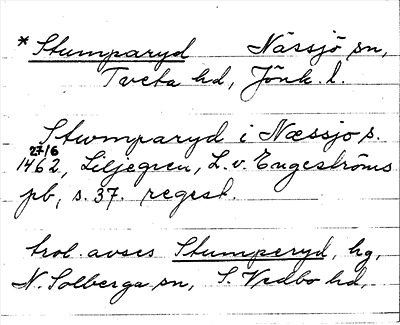 * Stumparyd Nässjö sn,
Tveta hd, Jönk. l.
Stumparyd i Næssjo s.
27/6
1462, Liljegren, L. v. Engeströms
pb, s. 37. regest.
trol. avses Stumperyd, hg,
N. Solberga sn, S. Vedbo hd.